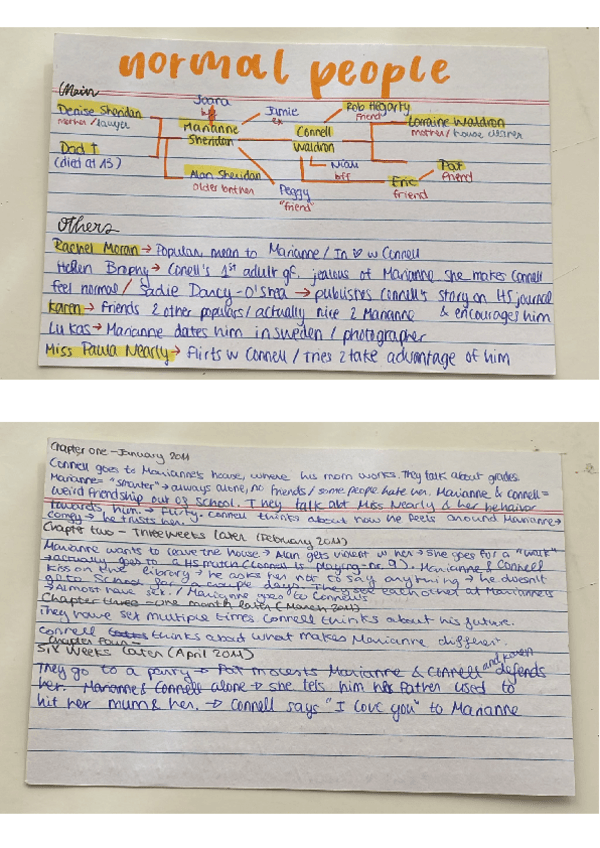 normal people
Main
Joana
Jamie
ex
Rob Hegarty
friend
Denise Sheridan
mother/lawyer
Marianne
Sheridan
Connell
Waldron
Lorraine Waldron
mother/house cleaner
Dad †
(died at 13)
Alan Sheridan
older brother
Peggy
"friend"
Niall
bff
Eric
friend
Pat
friend
Others
Rachel Moran → Popular, mean to Marianne / In ♡ w Connell
Hellen Brophy → Conell's 1st adult gf. jealous of Marianne she makes Connell
feel normal / Sadie Darcy-O'shea → publishes Connell's story on HS journal
Karen → Friends 2 other populars / actually nice 2 Marianne & encourages him
Lukas → Marianne dates him in sweden / photographer
Miss Paula Nearly → flirts w Connell / Tries 2 take advantage of him
Chapter one - January 2011
Connell goes to Marianne's house, where his mom works. They talk about grades.
Marianne = "smarter" → always alone, no friends / some people hate her. Marianne & Connell =
weird friendship out of school. They talk abt Miss Nearly & her behavior
towards him → Flirty. Connell thinks about how he feels around Marianne →
comfy → he trusts her.
Chapter two - Three weeks later (February 2011)
Marianne wants to leave the house → Alan gets violent w her → she goes for a "walk"
→ actually goes to a HS match (Connell is playing - nr. 9). Marianne & Connell
kiss on the library → he asks her not to say anything → he doesn't
go to School for a couple days. They see each other at Marianne's
→ Almost have sex. / Marianne goes to Connell's
Chapter three - one month later (March 2011)
They have sex multiple times Connell thinks about his future.
Connell thinks about what makes Marianne different.
Chapter Four -
Six weeks later (April 2011)
They go to a party → Pat molests Marianne & Connell and Karen defends
her. Marianne & Connell alone → she tells him her father used to
hit her mum & her. → Connell says "I love you" to Marianne